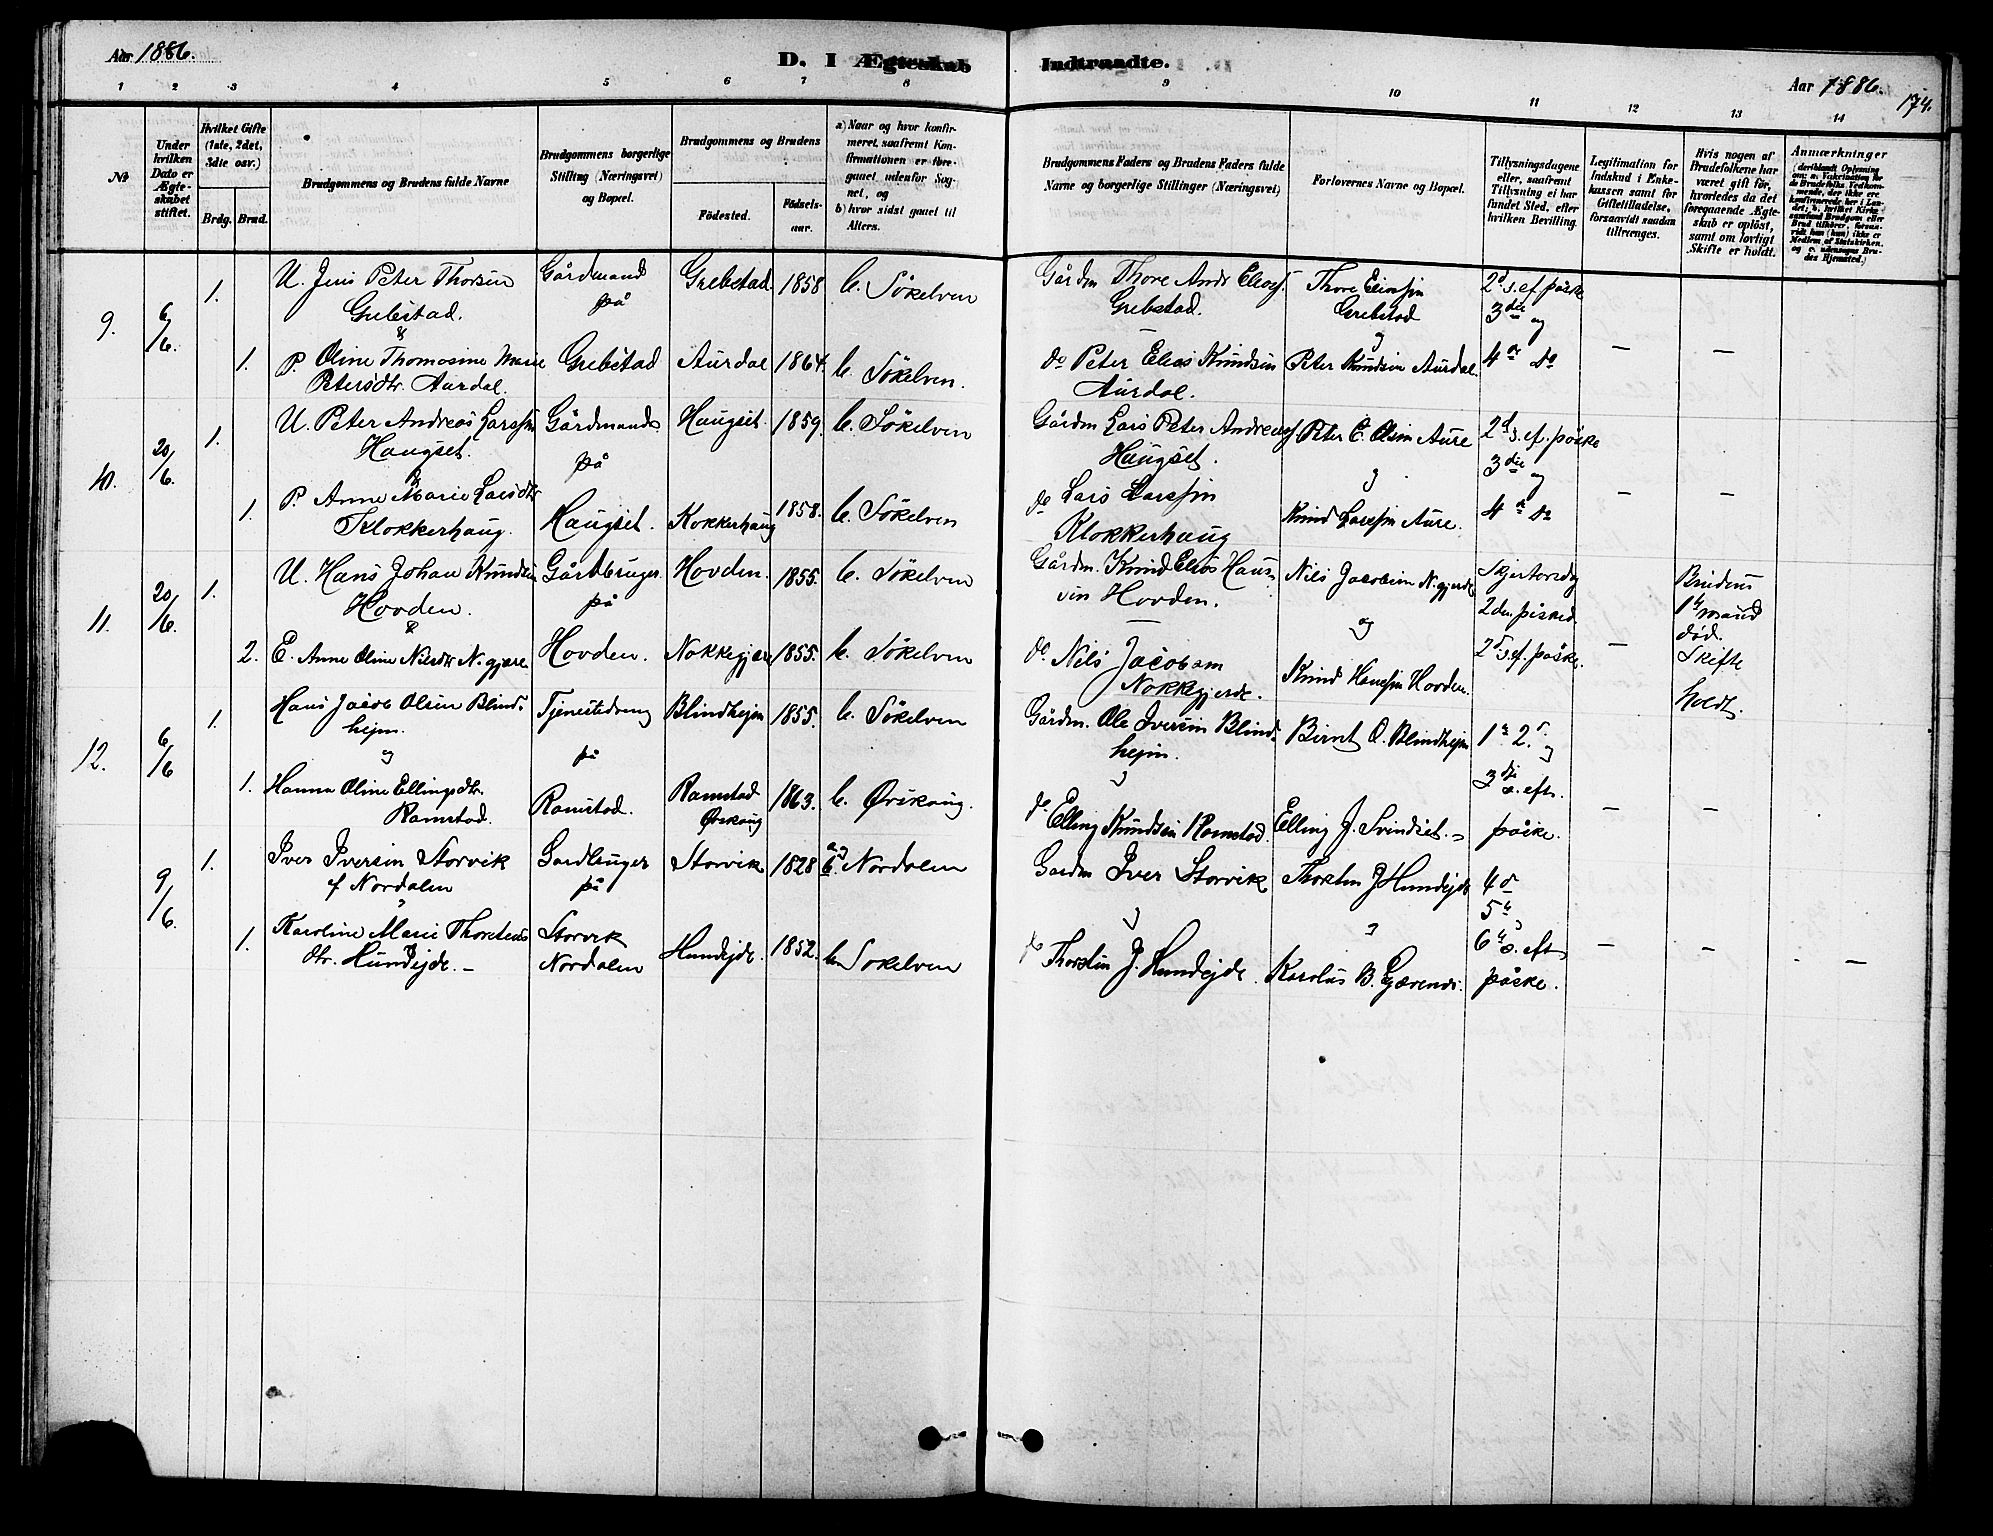 Aar 1886.
D. I Ægteskab Indtraadte.
Aar 1886.
174.
1 2 3 4 5 6 7 8 9 10 11 12 13 14
№
Under hvilken Dato er Ægteskabet stiftet.
Hvilket Gifte (1ste, 2det, 3die osv.)
Brdg. Brud.
Brudgommens og Brudens fulde Navne
Brudgommens borgerlige Stilling (Næringsvei) og Bopæl.
Brudgommens og Brudens
Födested.
Födsels-aar.
a) Naar og hvor konfirmeret, saafremt Konfirmationen er foregaaet udenfor Sognet, og
b) hvor sidst gaaet til Alters.
Brudgommens Faders og Brudens Faders fulde Navne og borgerlige Stillinger (Næringsvei)
Forlovernes Navne og Bopæl.
Tillysningsdagene eller, saafremt Tillysning ei har fundet Sted, efter hvilken Bevilling.
Legitimation for Indskud i Enkekassen samt for Giftetilladelse, forsaavidt saadan tiltrænges.
Hvis nogen af Brudefolkene har været gift för, hvorledes da det foregaaende Ægteskab er oplöst, samt om lovligt Skifte er holdt.
Anmærkninger
9.
6/6.
1.
U. Jens Peter Thorsen
Grebstad.
&
Gårdmand
på
Grebstad
1858
b. Sökelven
Gårdm Thore Andr Eliasf.
Grebstad.
Thore Eliassen
Grebstad
og
2d s. ef. påske
3die og
1.
P. Oline Thomasine Marie
Petersdtr. Aurdal.
Grebstad
Aurdal
1864.
b. Sökelven.
do Peter Elias Knudsen
Aurdal.
Peter Knudsen Aurdal.
4de do
10.
20/6.
1.
U. Peter Andreas Larssen
Haugset.
&
Gårdmands
på
Haugset
1859.
b. Sökelven
Gårdm Lars Peter Andreasf
Haugset.
Peter E. Olsen Aure
og
2d s. ef. påske
3die og
1.
P. Anne Marie Larsdtr
Klokkerhaug.
Haugset.
Kokkerhaug
1858.
b. Sökelven
do Lars Larssen
Klokkerhaug
Knud Larssen Aure.
4de do
11.
20/6.
1.
U. Hans Johan Knudsen
Hovden.
&
Gårdbruger
på
Hovden.
1855.
b. Sökelven
Gårdm. Knud Elias Han-
sen Hovden.
Nils Jacobsen N.gjerde
og
Skjertorsdag
2den påsked.
Brudens
1ste mand
död.
Skifte
holdt.
2.
E. Anne Oline Nilsdtr N.gjære
Hovden.
Nokkegjære
1855.
b. Sökelven
do Nils Jacobsen
Nokkegjerde.
Knud Hanssen Hovden.
2d s. ef. påske.
12.
6/6
1.
Hans Jacob Olsen Blind-
hejm.
og
Tjenestedreng
på
Blindhejm
1855.
b. Sökelven
Gårdm. Ole Iversen Blind-
hejm.
Bernt O. Blindhejm
1ste 2. og
3die s. eft.
påske.
1.
Hanna Oline Ellingsdtr.
Ramstad.
Ramstad.
Ramstad
Örskoug
1863.
b. Örskoug.
do Elling Knudsen Ramstad.
Elling J. Svindset.
9/6.
1.
Iver Iversen Storvik
f Nordalen
Gardbruger
på
Storvik
1828
a. og b. Nordalen
Gardm Iver Storvik
Thorsten J Hundejde
4de
5te og
6te s. eft
påske.
1.
Karoline Marie Thorstens
dtr. Hundejde.
Storvik
Nordalen
Hundejde.
1852.
b. Sökelven
do Thorsten J. Hundejde.
Karolus B. Gjævenes.